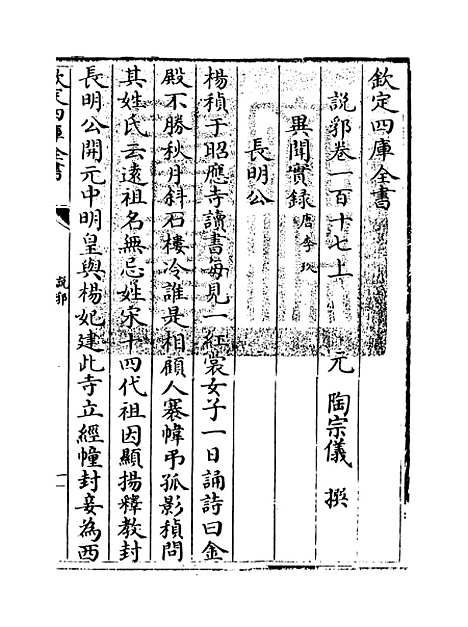 欽定四庫全書
說郛卷一百十七上 元 陶宗儀 撰
異聞實録唐李玖
長明公
楊稹于昭應寺讀書每見一紅裳女子一日誦詩曰金
殿不勝秋月斜石樓冷誰是相顧人褰幃弔孤影稹問
其姓氏云遠祖名無忌姓宋十四代祖因顯揚釋教封
長明公開元中明皇與楊妃建此寺立經幢封妾為西
欽定四庫全書
說郛
一